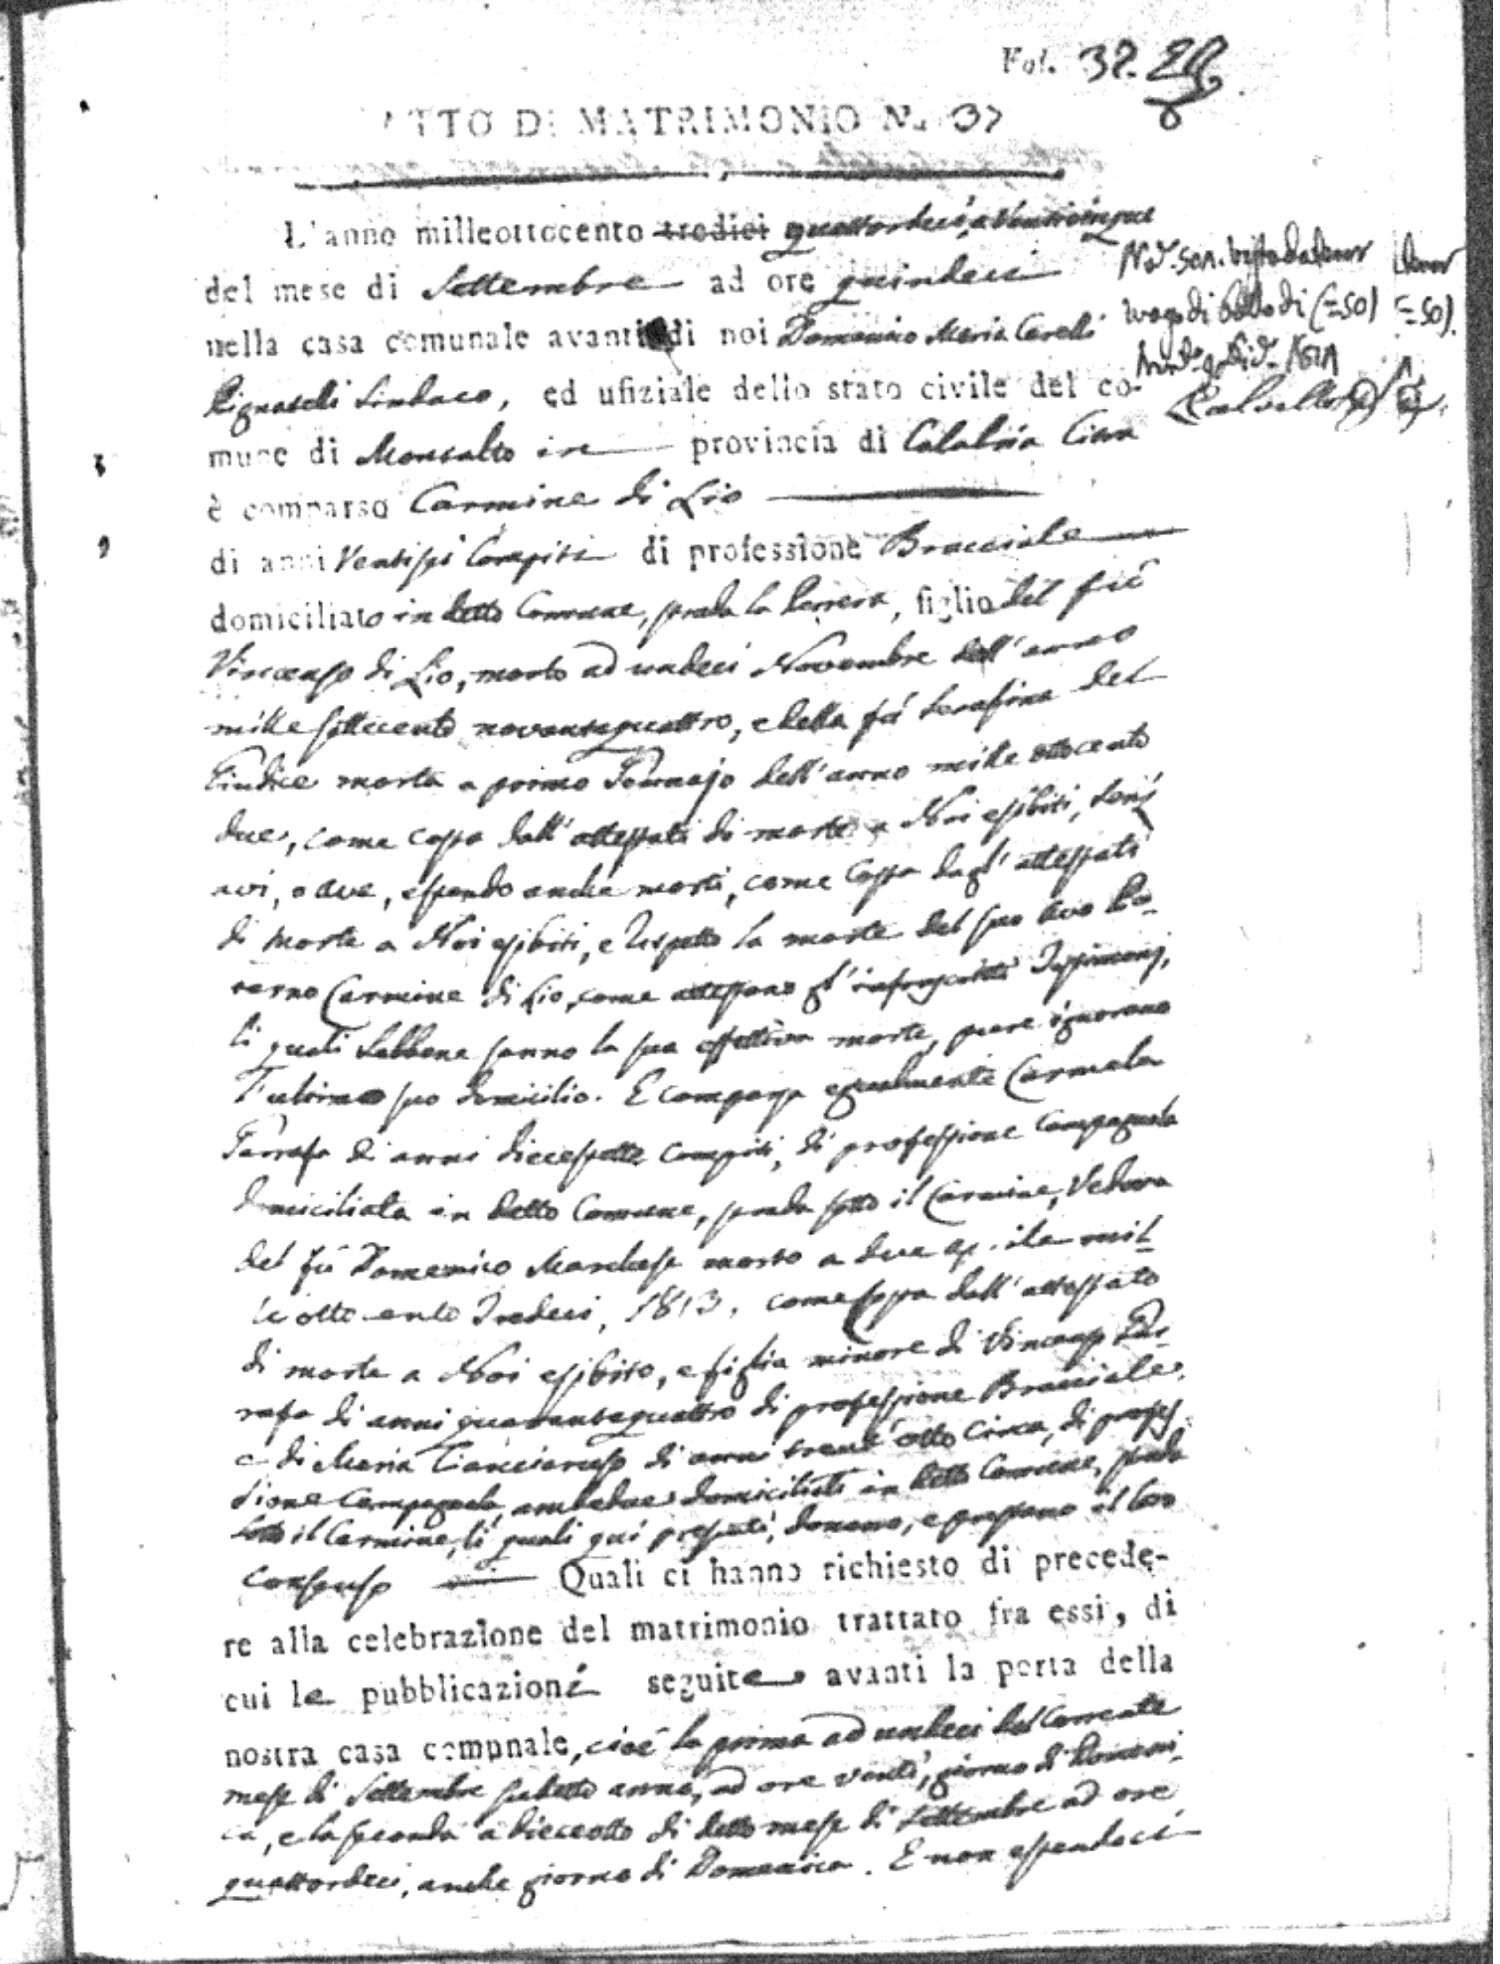 Fol. 32.
ATTO DI MATRIMONIO N. 37
L'anno milleottocento tredici quattordeci, a venticinque
del mese di Settembre ad ore quindeci
nella casa comunale avanti di noi Domenico Maria Carelli
Pignatelli Sindaco, ed ufiziale dello stato civile del co-
mune di Montalto in provincia di Calabria Citra
è comparso Carmine di Lio
di anni Ventisei Compiti di professione Bracciale
domiciliato in detto Comune, strada la Porrera, figlio del fù
Vincenzo di Lio, morto ad undeci Novembre dell'anno
mille settecento novantaquattro, e della fù Serafina del
Giudice morta a primo Gennajo dell'anno mille ottocento
due, come costa dall'attestati di morte a Noi esibiti, suoi
avi, o ave, essendo anche morti, come costa dagl'attestati
di morte a Noi esibiti, e rispetto la morte del suo Avo Pa-
terno Carmine di Lio, come attestano gl'infrascritti Testimonj,
li quali sebbene sanno la sua effettiva morte, pure ignorano
l'ultimo suo domicilio. E comparsa egualmente Carmela
Garrafa di anni diecessette compiti, di professione Campagnola
domiciliata in detto Comune, strada sotto il Carmine, Vedova
del fù Domenico Marchese morto a due aprile mil-
le ottocento Tredeci, 1813, come costa dall'attestato
di morte a Noi esibito, e figlia minore di Vincenzo Gar-
rafa di anni quarantaquattro di professione Bracciale,
e di Maria di anni trent'otto circa, di profes-
sione Campagnola, ambedue domiciliati in detto Comune, strada
sotto il Carmine, li quali quì presenti, donano, e prestano il loro
Consenso Quali ci hanno richiesto di precede-
re alla celebrazione del matrimonio trattato fra essi, di
cui le pubblicazioni seguite avanti la porta della
nostra casa comunale, cioè la prima ad undeci del corrente
mese di Settembre sudetto anno, ad ore venti, giorno di Domeni-
ca, e la seconda a dieceotto di detto mese di Settembre ad ore
quattordeci, anche giorno di Domenica. E non essendoci